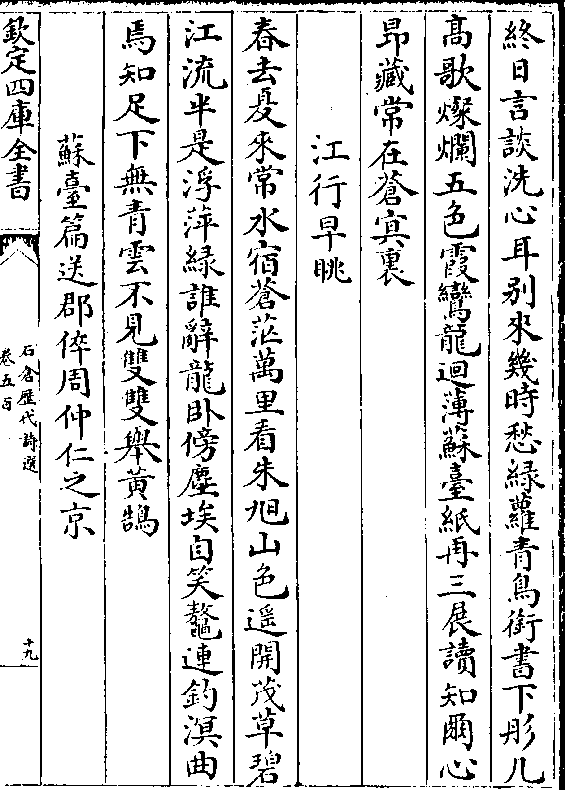 終日言談洗心耳别來幾時愁緑蘿青鳥銜書下彤几
髙歌燦爛五色霞鸞龍迴薄蘇臺紙再三展讀知爾心
昂藏常在蒼寘裏
江行早眺
春去夏來常水宿蒼茫萬里看朱旭山色遥開茂草碧
江流半是浮萍緑誰辭龍卧傍塵埃自笑鼇連釣溟曲
焉知足下無青雲不見雙雙舉黄鵠
蘇臺篇送郡倅周仲仁之京
欽定四庫全書
石倉歴代詩選
卷五百
十九